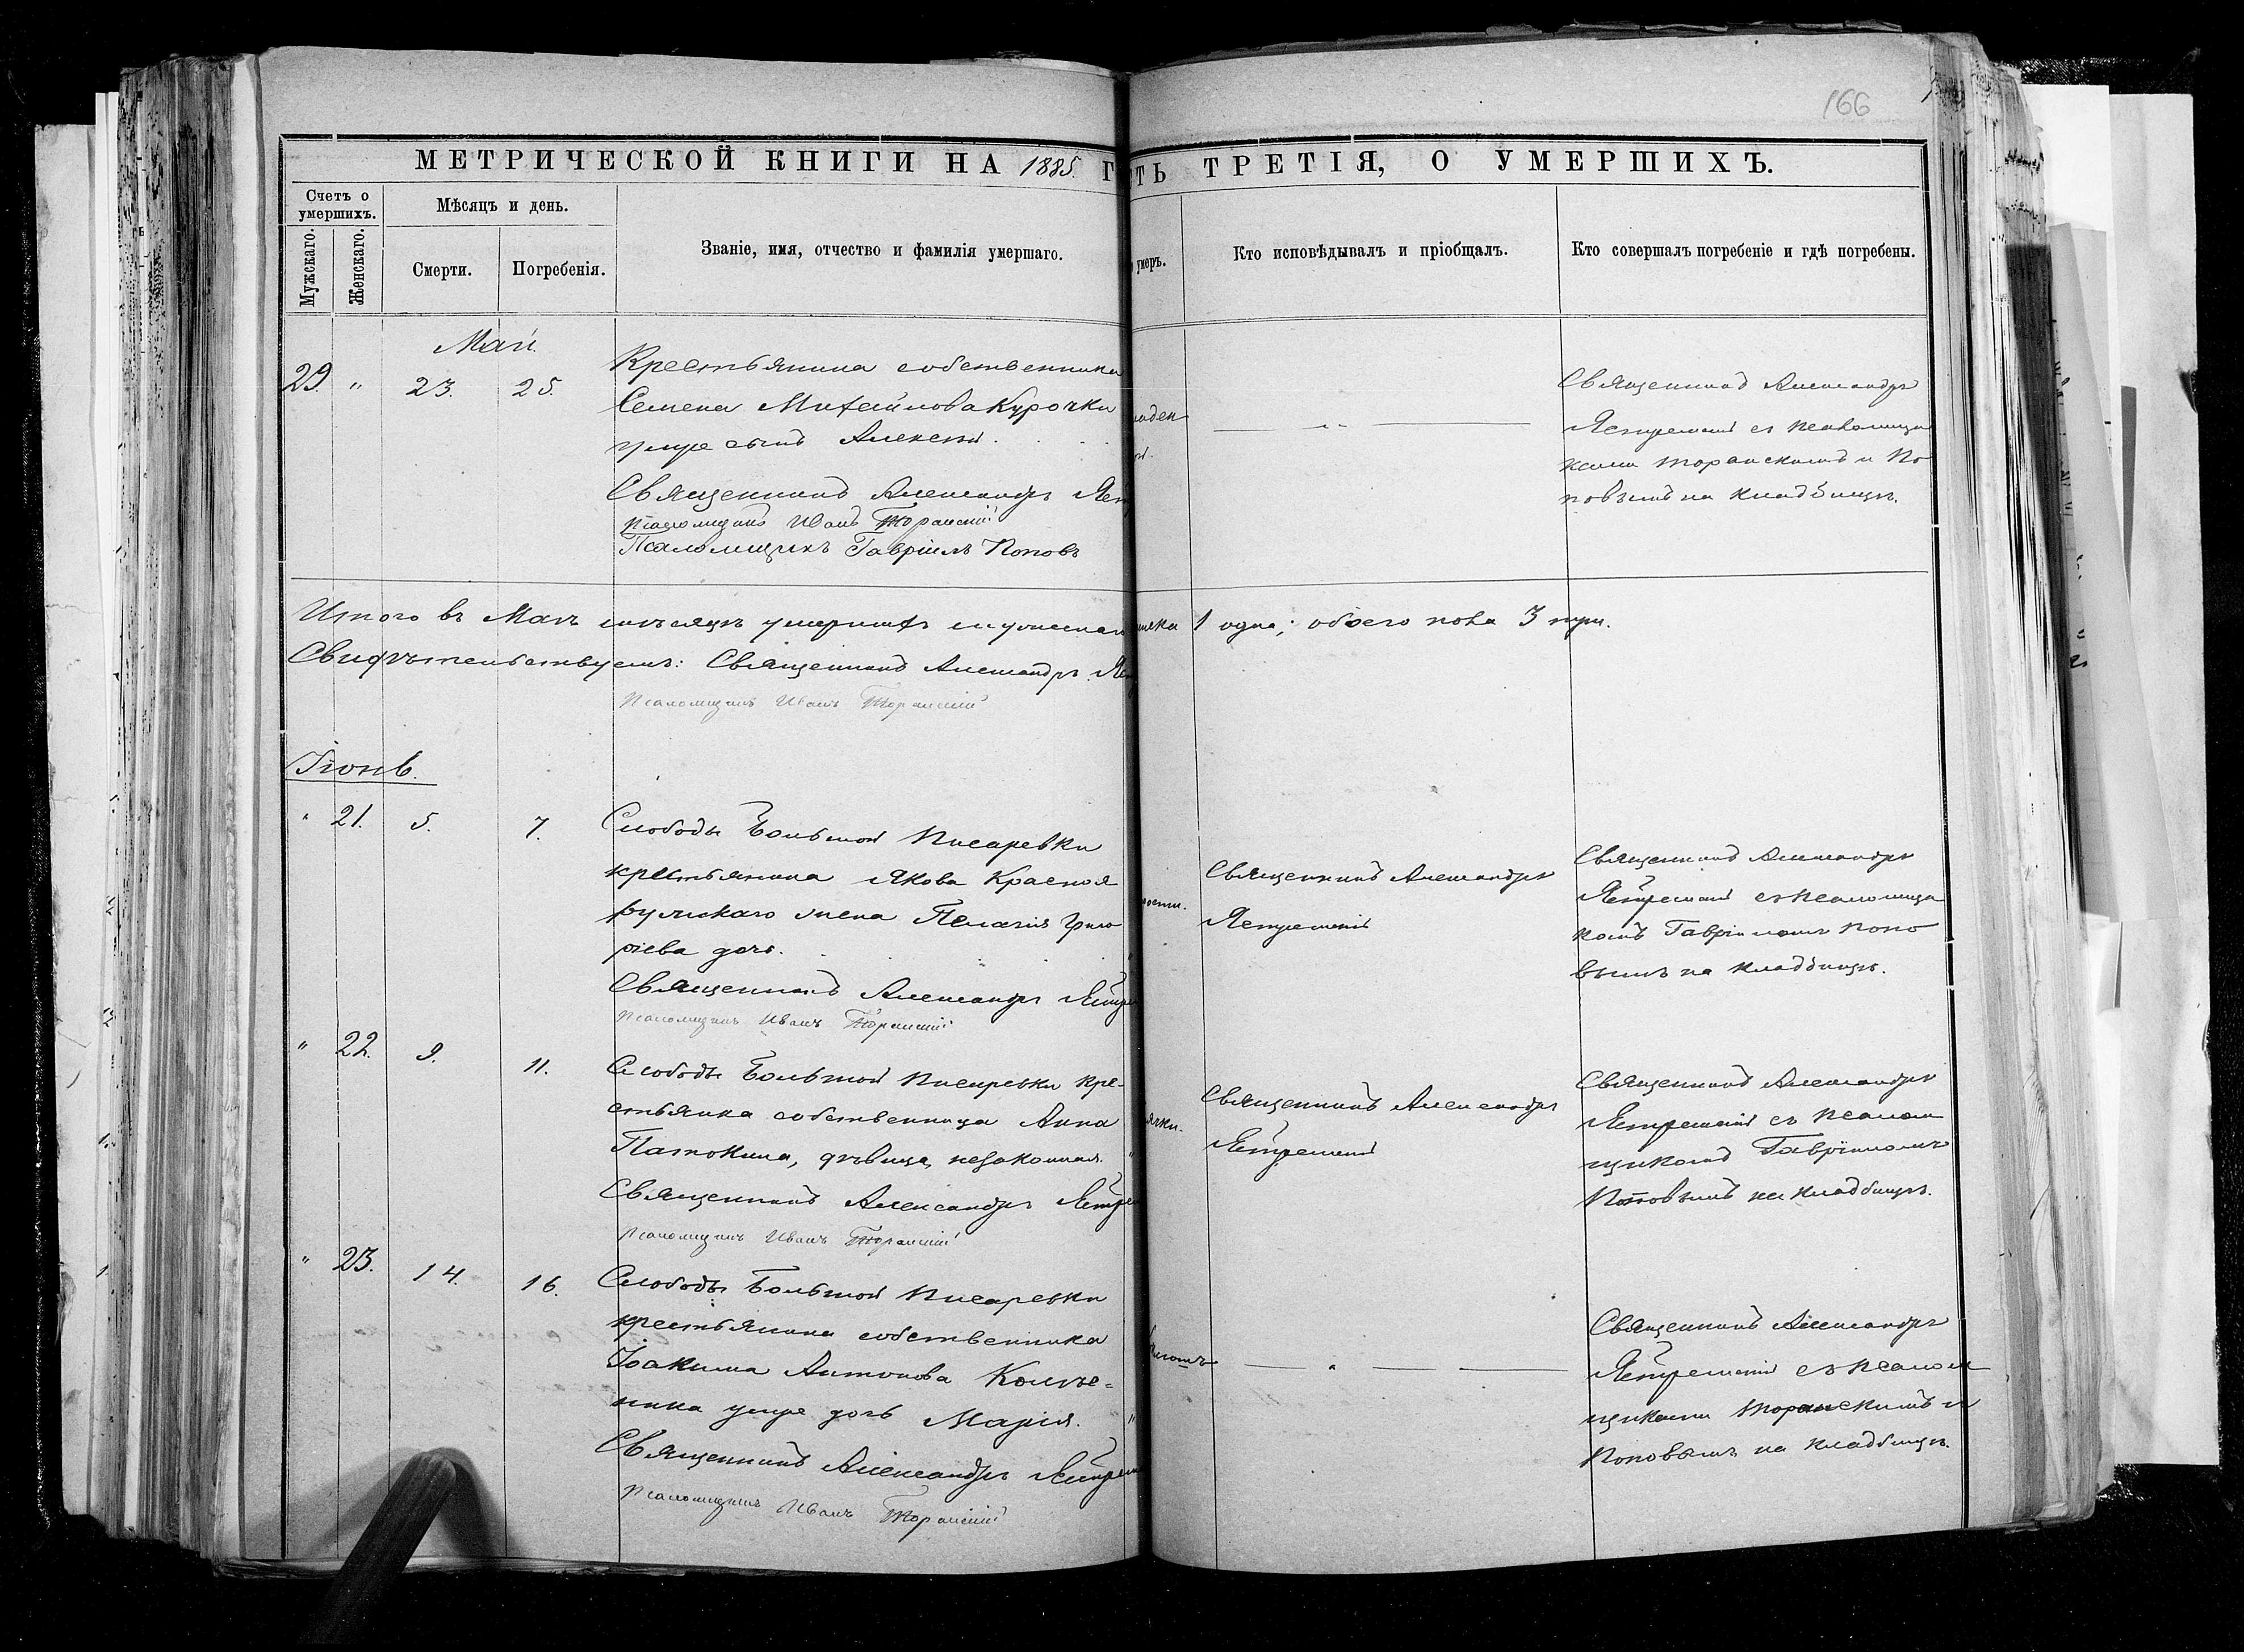 166
МЕТРИЧЕСКОЙ КНИГИ НА 1885. Г
ТЬ ТРЕТІЯ, О УМЕРШИХЪ.
Счетъ о умершихъ.
Мужскаго.
Женскаго.
Мѣсяцъ и день.
Смерти.
Погребенія.
Званіе, имя, отчество и фамилія умершаго.
умеръ.
Кто исповѣдывалъ и пріобщалъ.
Кто совершалъ погребеніе и гдѣ погребены.
Май.
29. " 23. 25.
Крестьянина собственника
Семена Михайлова Курочки
умре сынъ Алексій.
Священникъ Александръ Яст
Псаломщикъ Иванъ Торанскій
Псаломщикъ Гавріилъ Поповъ
ладен
Священникъ Александръ
Ястремскій съ псаломщи
ками Торанскимъ и По
повымъ на кладбищѣ.
Итого въ Маѣ мѣсяцѣ умершихъ мужескаг
1 одна; обоего пола 3 три.
Свидѣтельствуемъ: Священникъ Александръ Яст
Псаломщикъ Иванъ Торанскій
Іюнь.
" 21. 5. 7.
Слободы Большой Писаревки
крестьянина Якова Красноя
ружскаго жена Пелагія Григо
ріева дочь.
Священникъ Александръ Ястре
Псаломщикъ Иванъ Торанскій
рости.
Священникъ Александръ
Ястремскій
Священникъ Александръ
Ястремскій съ псаломщи
комъ Гавріиломъ Попо
вымъ на кладбищѣ.
" 22. 9. 11.
Слободы Большой Писаревки кре-
стьянка собственница Анна
Патокина, дѣвица, незаконная.
Священникъ Александръ Ястре
Псаломщикъ Иванъ Торанскій
ячки.
Священникъ Александръ
Ястремскій
Священникъ Александръ
Ястремскій съ псалом
щикомъ Гавріиломъ
Поповымъ на кладбищѣ.
" 23. 14. 16.
Слободы Большой Писаревки
крестьянина собственника
Іоакима Антонова Колѣс=
ника умре дочь Марія.
Священникъ Александръ Ястрем
Псаломщикъ Иванъ Торанскій
Священникъ Александръ
Ястремскій съ псалом
щиками Торанскимъ и
Поповымъ на кладбищѣ.